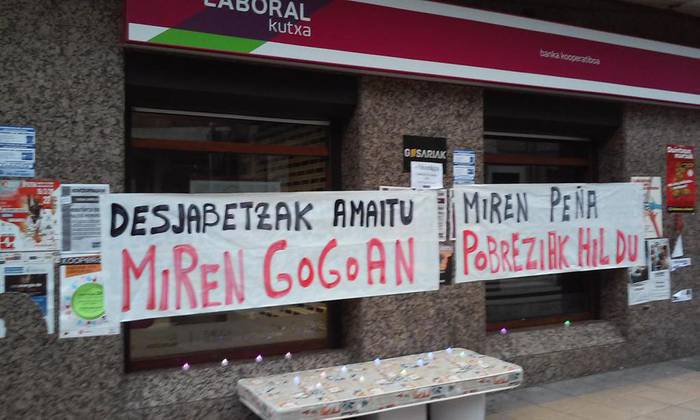 LABORAL
kutxa
banka kooperatiboa
GOSARIAK
DESJABETZAK AMAITU
MIREN GOGOAN
MIREN PEÑA
POBREZIAK HIL DU